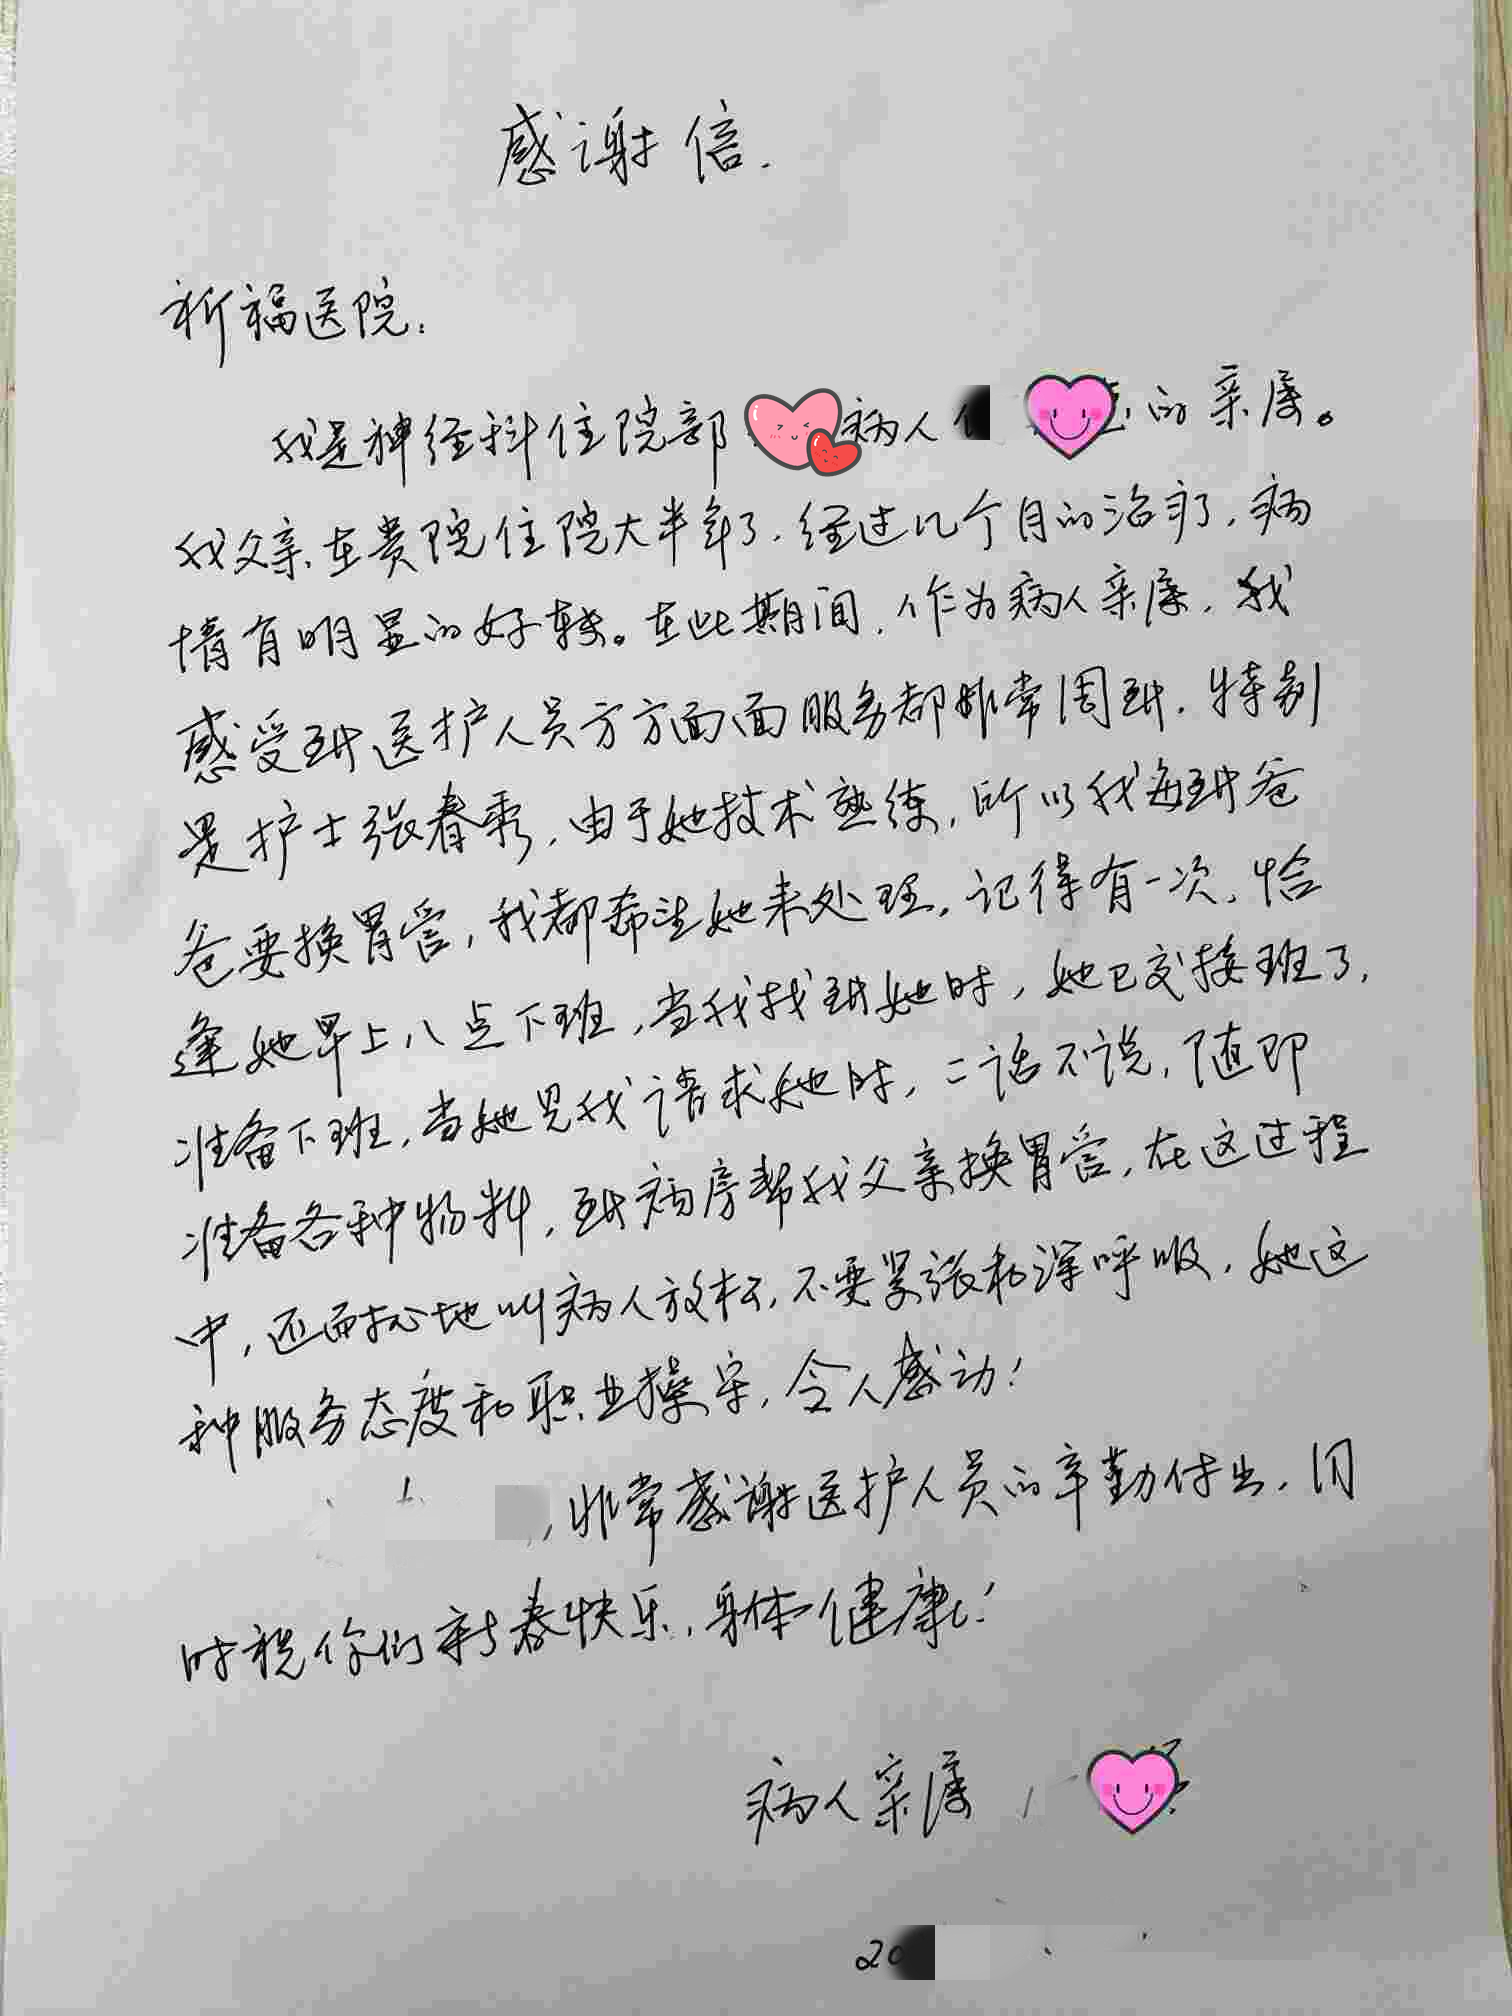 感谢信.
祈福医院:
我是神经科住院部 病人 的亲属。
我父亲在贵院住院大半年了.经过几个月的治疗,病
情有明显的好转。在此期间,作为病人亲属,我
感受到医护人员方方面面服务都非常周到.特别
是护士张春秀,由于她技术熟练,所以我每到爸
爸要换胃管,我都希望她来处理,记得有一次,恰
逢她早上八点下班,当我找到她时,她已交接班了,
准备下班,当她见我请求她时,二话不说,随即
准备各种物料,到病房帮我父亲换胃管,在这过程
中,还耐心地叫病人放松,不要紧张和深呼吸,她这
种服务态度和职业操守,令人感动!
,非常感谢医护人员的辛勤付出,同
时祝你们新春快乐,身体健康!
病人亲属
20